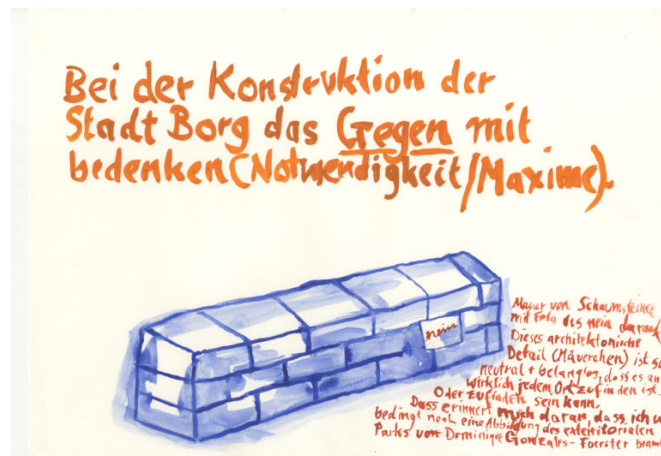 Bei der Konstruktion der
Stadt Borg das Gegen mit
bedenken (Notwendigkeit/Maxime).
nein
Mauer von
mit Foto des nein darauf
Dieses architektonische
Detail (Mäuerchen) ist so
neutral + belanglos, dass es an
wirklich jedem Ort zufinden ist.
Oder zufinden sein kann.
Dass erinnert mich daran, dass ich
bedingt noch eine Abbildung des exterritorialen
Parks von Dominique Gonzales-Foerster